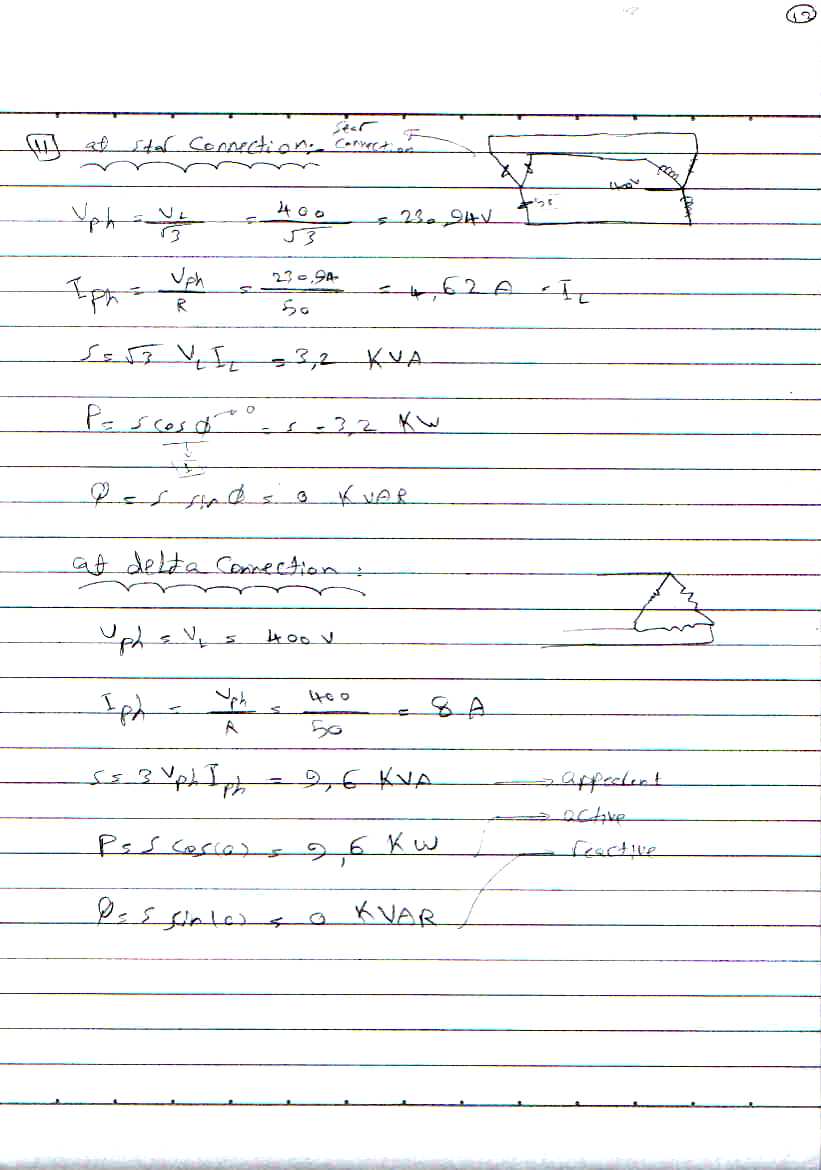 12
11 at star Connection:- star Connection
Vph = VL/√3 = 400/√3 = 230,94V
Iph = Vph/R = 230,94/50 = 4,62 A = IL
S = √3 VL IL = 3,2 KVA
P = S cos ϕ → 0 = S = 3,2 KW
Q = S sin ϕ = 0 KVAR
at delta Connection :
Vph = VL = 400 V
Iph = Vph/R = 400/50 = 8 A
S = 3 Vph Iph = 9,6 KVA → appedent
→ active
P = S cos(0) = 9,6 KW → reactive
Q = S sin(0) = 0 KVAR